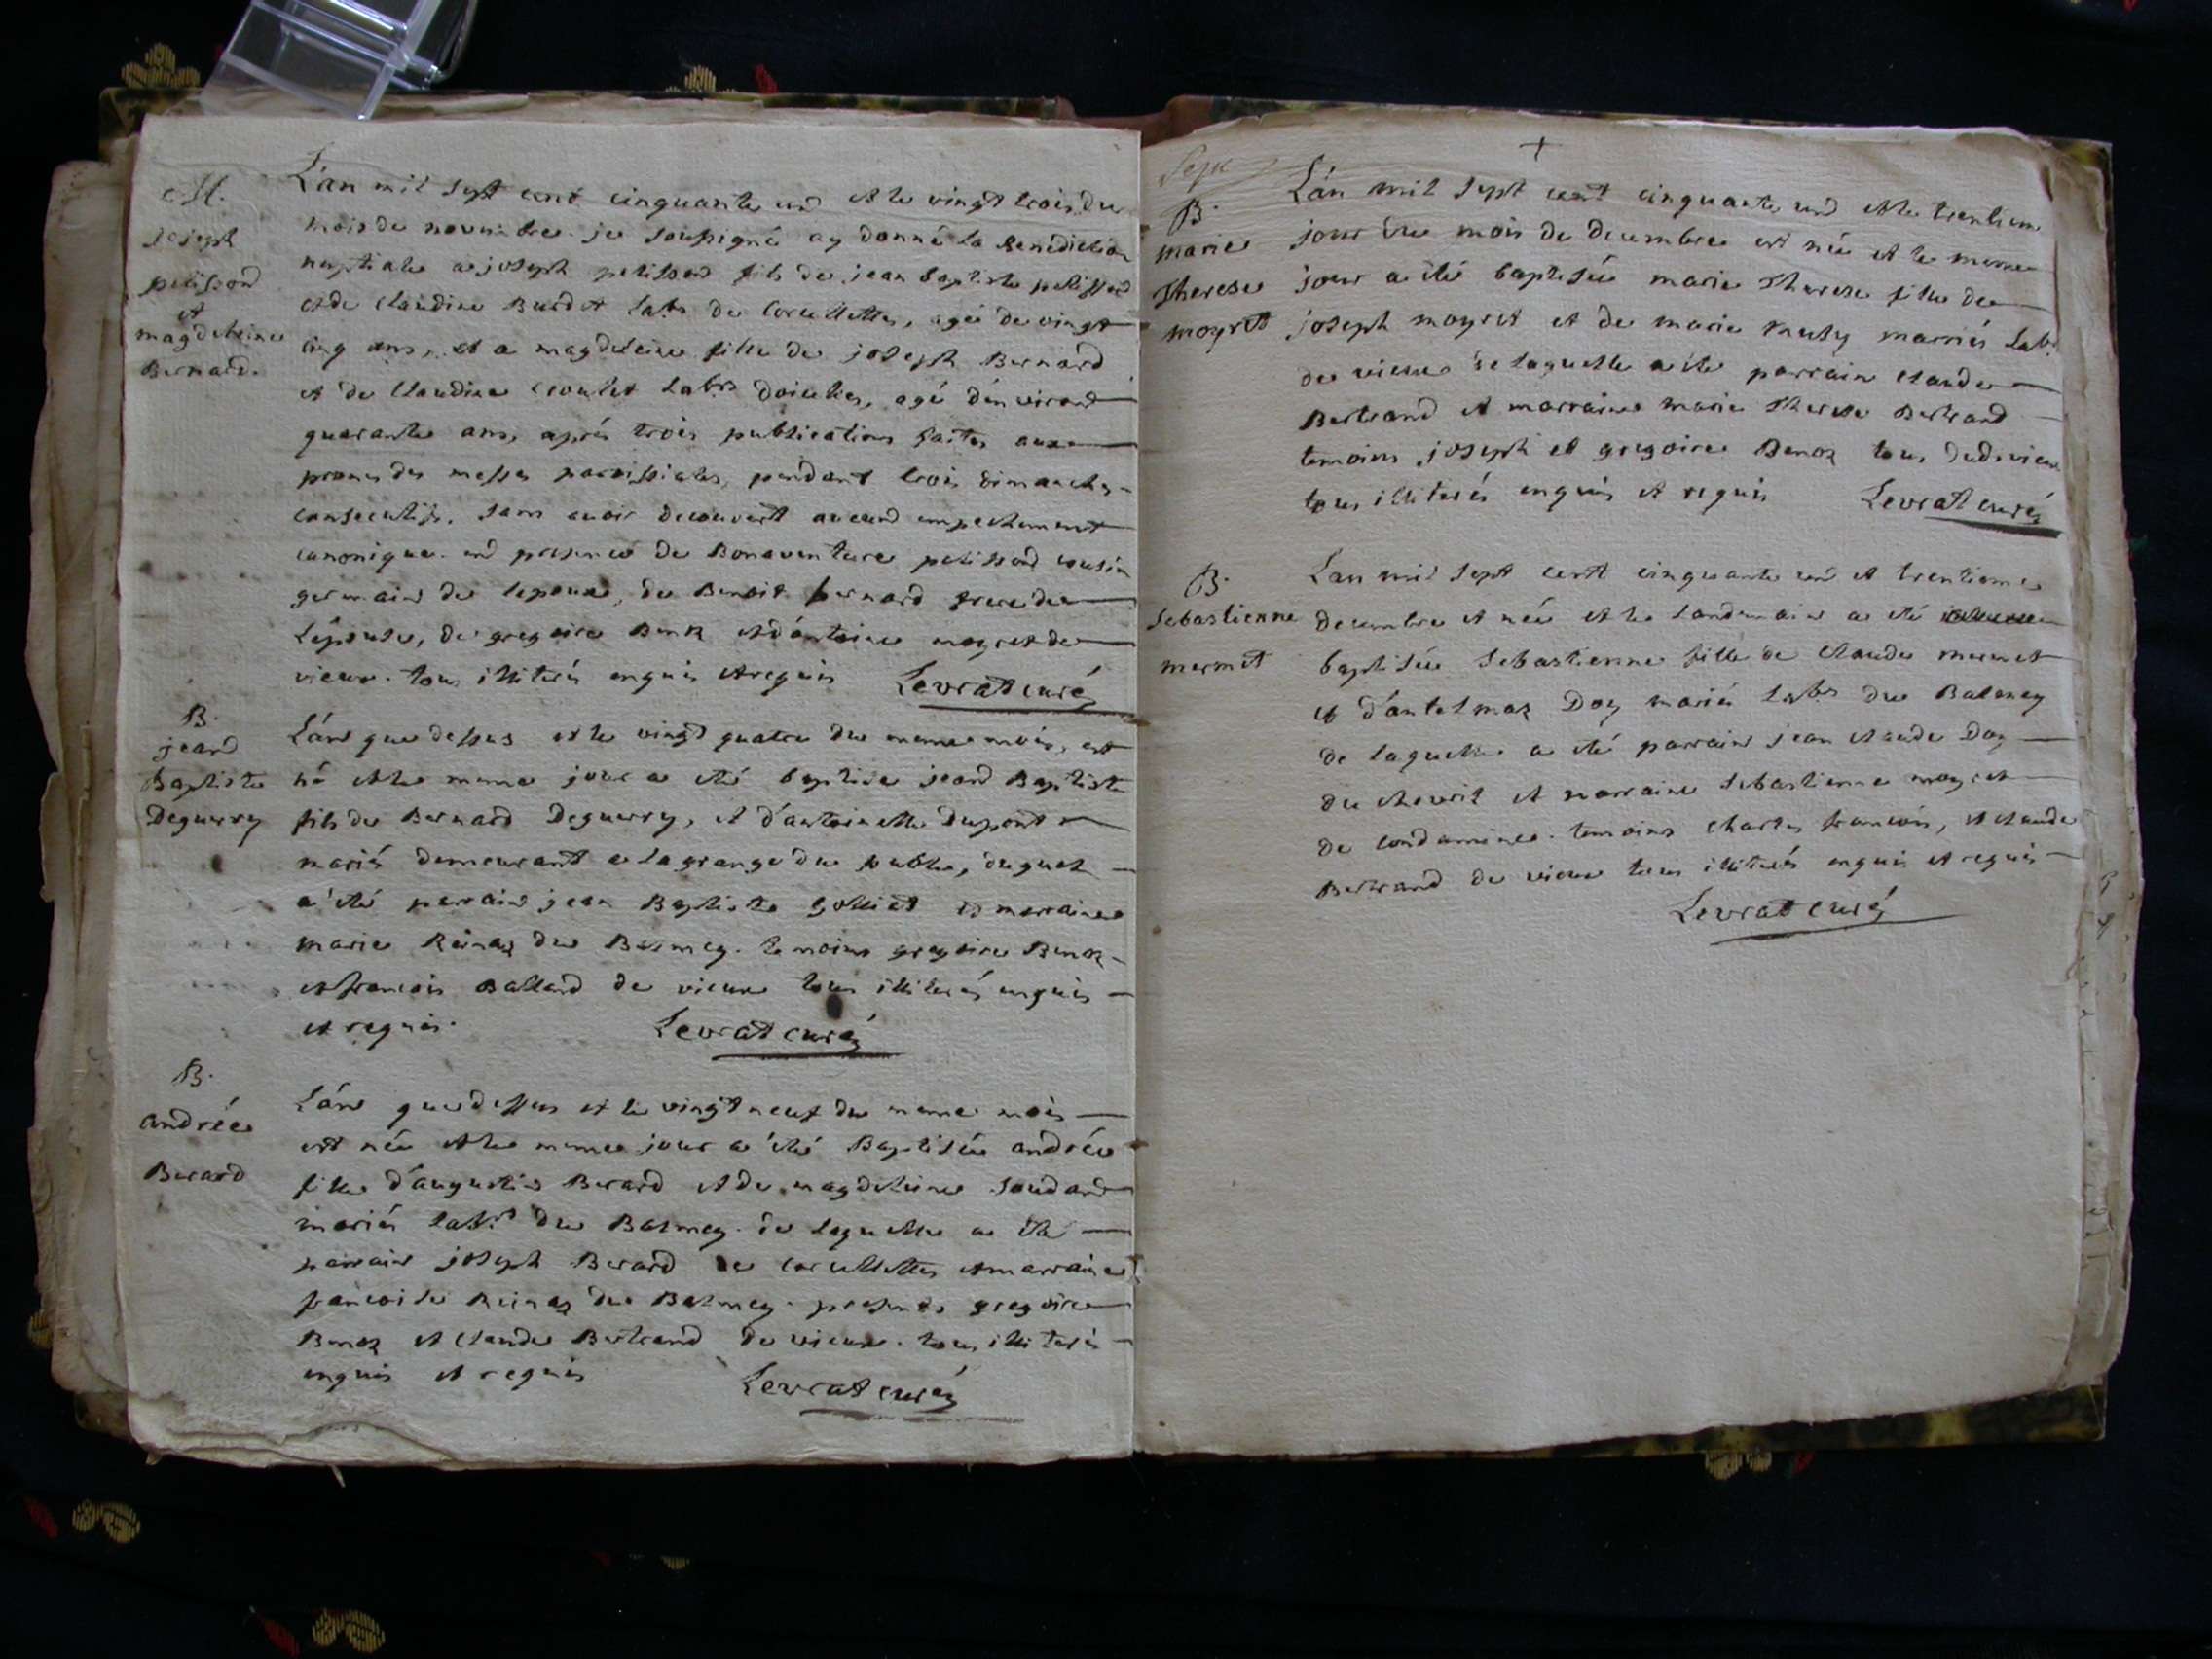 M.
joseph
pelissond
et
magdeleine
Bernard.
L'an mil sept cent cinquante und et le vingt trois du
mois de novembre je soussigné ay donné la Benediction
nuptiale a joseph pelissond fils de jean baptiste pelissond
et de claudine Burdet labrs de Corcellettes, agé de vingt
cinq ans, et a magdeleine fille de joseph Bernard
et de claudine labrs agé d'environd
quarante ans, aprés trois publications faites aux
prones des messes paroissiales, pendant trois dimanches
consecutifs, sans avoir decouvert aucund empechement
canonique. end presence de Bonaventure pelissond cousin
germaind de lepoux, de Benoit bernard frere de
L'épouse, de gregoire Benoz et d'antoine moyret de
vieux. tous illiterés enquis et requis Levrat curé
B.
jeand
Baptiste
Deguerry
L'and que dessus et le vingt quatre du meme mois, est
né et le meme jour a eté baptisé jeand Baptiste
fils de Bernard Deguerry, et d'antoinette Dupont
mariés demeurant a la grange du duquel
a été parraind jean Baptiste golliet et marraine
marie Reinaz du Balmey. temoins gregoire Benoz
et francois Balland de vieux tous illiterés enquis
et requis. Levrat curé
B.
andrée
Berard
L'and que dessus et le vingt neuf du meme mois
est née et le meme jour a été Baptisée andrée
fille d'augustin Berard et de magdeleine Soudand
mariés labrs du Balmey. de laquelle a eté
parraind joseph Berard de corcellettes et marraine
francoise Reinaz du Balmey. presents gregoire
Benoz et Claude Bertrand de vieux. tous illiterés
enquis et requis Levrat curé
Sept
B.
marie
Therese
moyret
L'an mil sept cent cinquante und et le trentieme
jour du mois de decembre est née et le meme
jour a eté baptisée marie Therese fille de
joseph moyret et de marie mariés labrs
de vieux de laquelle a eté parrain claude
Bertrand et marraine marie Therese Bertrand
temoins joseph et gregoire Benoz tous dud. vieux
tous illiterés enquis et requis Levrat curé
B.
Sebastienne
mermet
L'an mil sept cent cinquante und et trentieme
decembre et née et le landemaind a eté
baptisée Sebastienne fille de claude mermet
et d'antelmaz Doy mariés labrs du Balmey
de laquelle a eté parraind jean claude Doy
du et marraine Sebastienne moyret
de condamine. temoins charles francois, et claude
Bertrand de vieux tous illiterés enquis et requis
Levrat curé